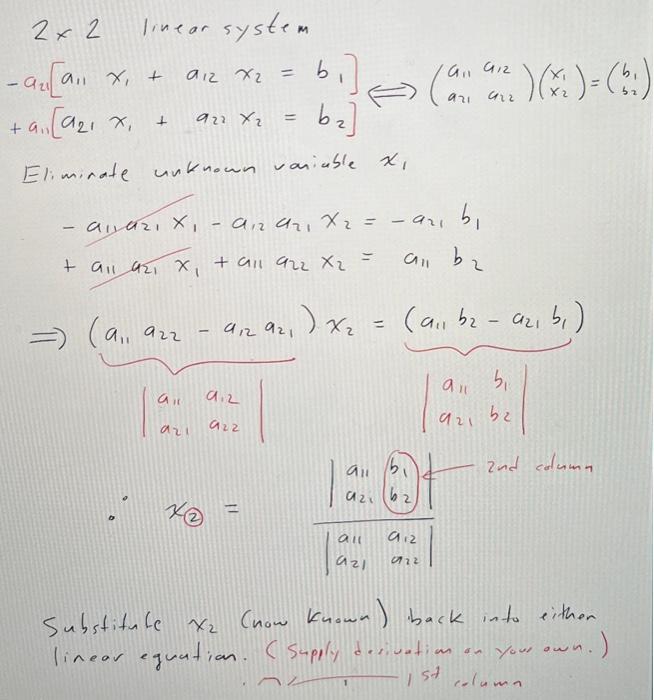 2x2 linear system
-a21[a11 x1 + a12 x2 = b1]
+a11[a21 x1 + a22 x2 = b2] ⟺ (a11 a12 a21 a22)(x1 x2)=(b1 b2)
Eliminate unknown variable x1
- a11 a21 x1 - a12 a21 x2 = - a21 b1
+ a11 a21 x1 + a11 a22 x2 = a11 b2
⟹ (a11 a22 - a12 a21) x2 = (a11 b2 - a21 b1)
|a11 a12| |a11 b1|
|a21 a22| |a21 b2|
|a11 b1| 2nd column
|a21 b2|
∴ x2 =
|a11 a12|
|a21 a22|
Substitute x2 (now known) back into either
linear equation. (Supply derivation on your own.)
1st column